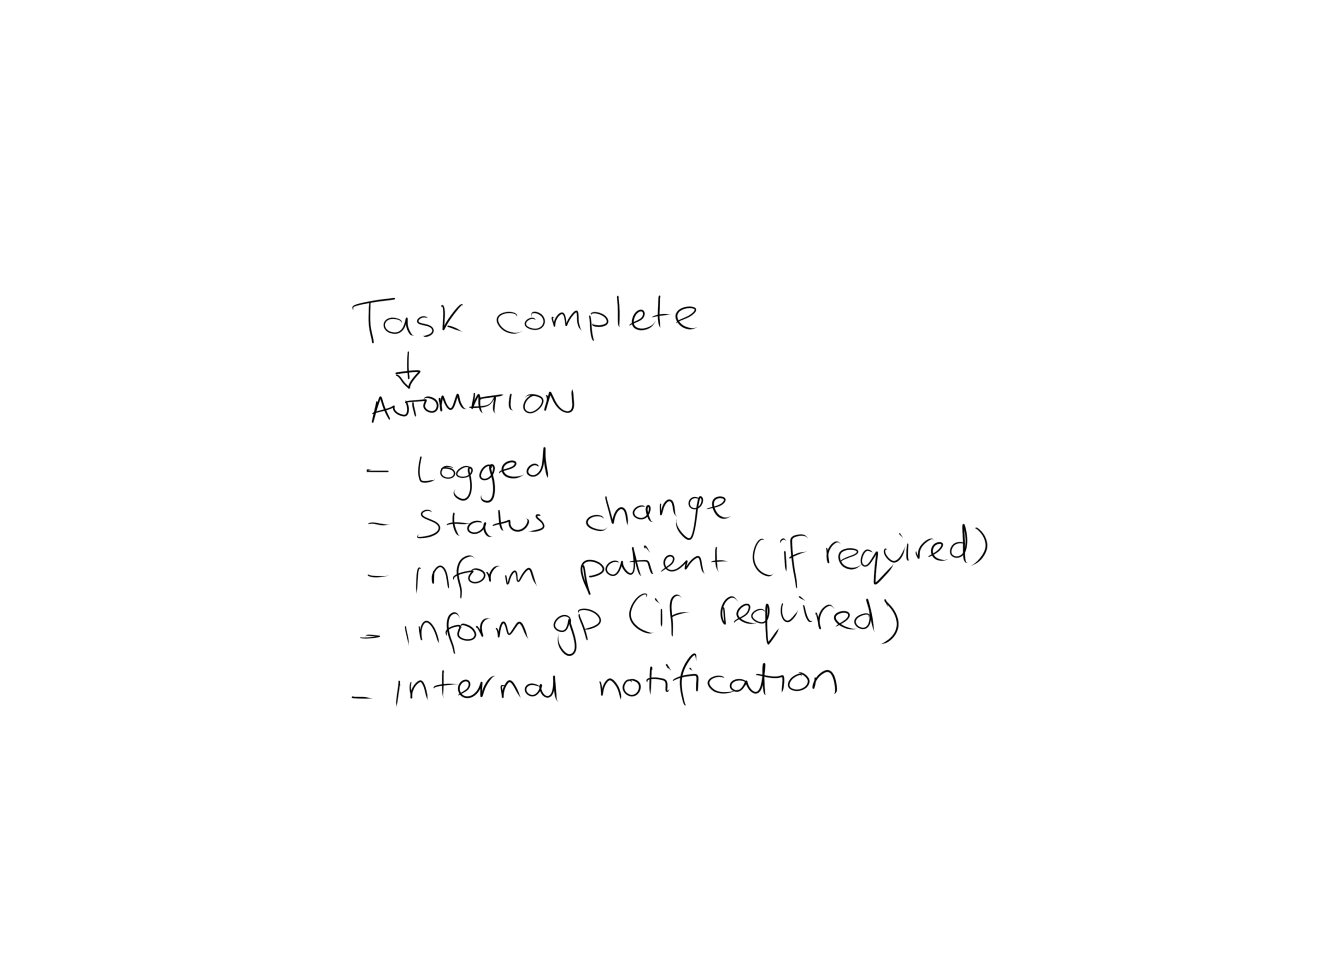 Task complete
↓
AUTOMATION
- Logged
- Status change
- inform patient (if required)
- inform gp (if required)
- internal notification